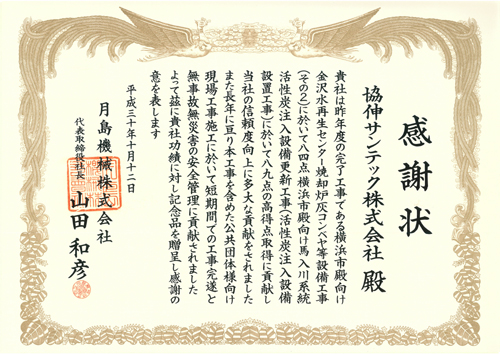 感謝状
協伸サンテック株式会社 殿
貴社は昨年度の完了工事である横浜市殿向け
金沢水再生センター焼却炉灰コンベヤ等設備工事
(その2)に於いて八四点 横浜市殿向け馬入川系統
活性炭注入設備更新工事(活性炭注入設備
設置工事)に於いて八九点の高得点取得に貢献し
当社の信頼度向上に多大な貢献をされました
また長年に亘り本工事を含めた公共団体様向け
現場工事施工に於いて短期間での工事完遂と
無事故無災害の安全管理に貢献されました
よって茲に貴社功績に対し記念品を贈呈し感謝の
意を表します
平成三十年十月十二日
月島機械株式会社
代表取締役社長 山田和彦